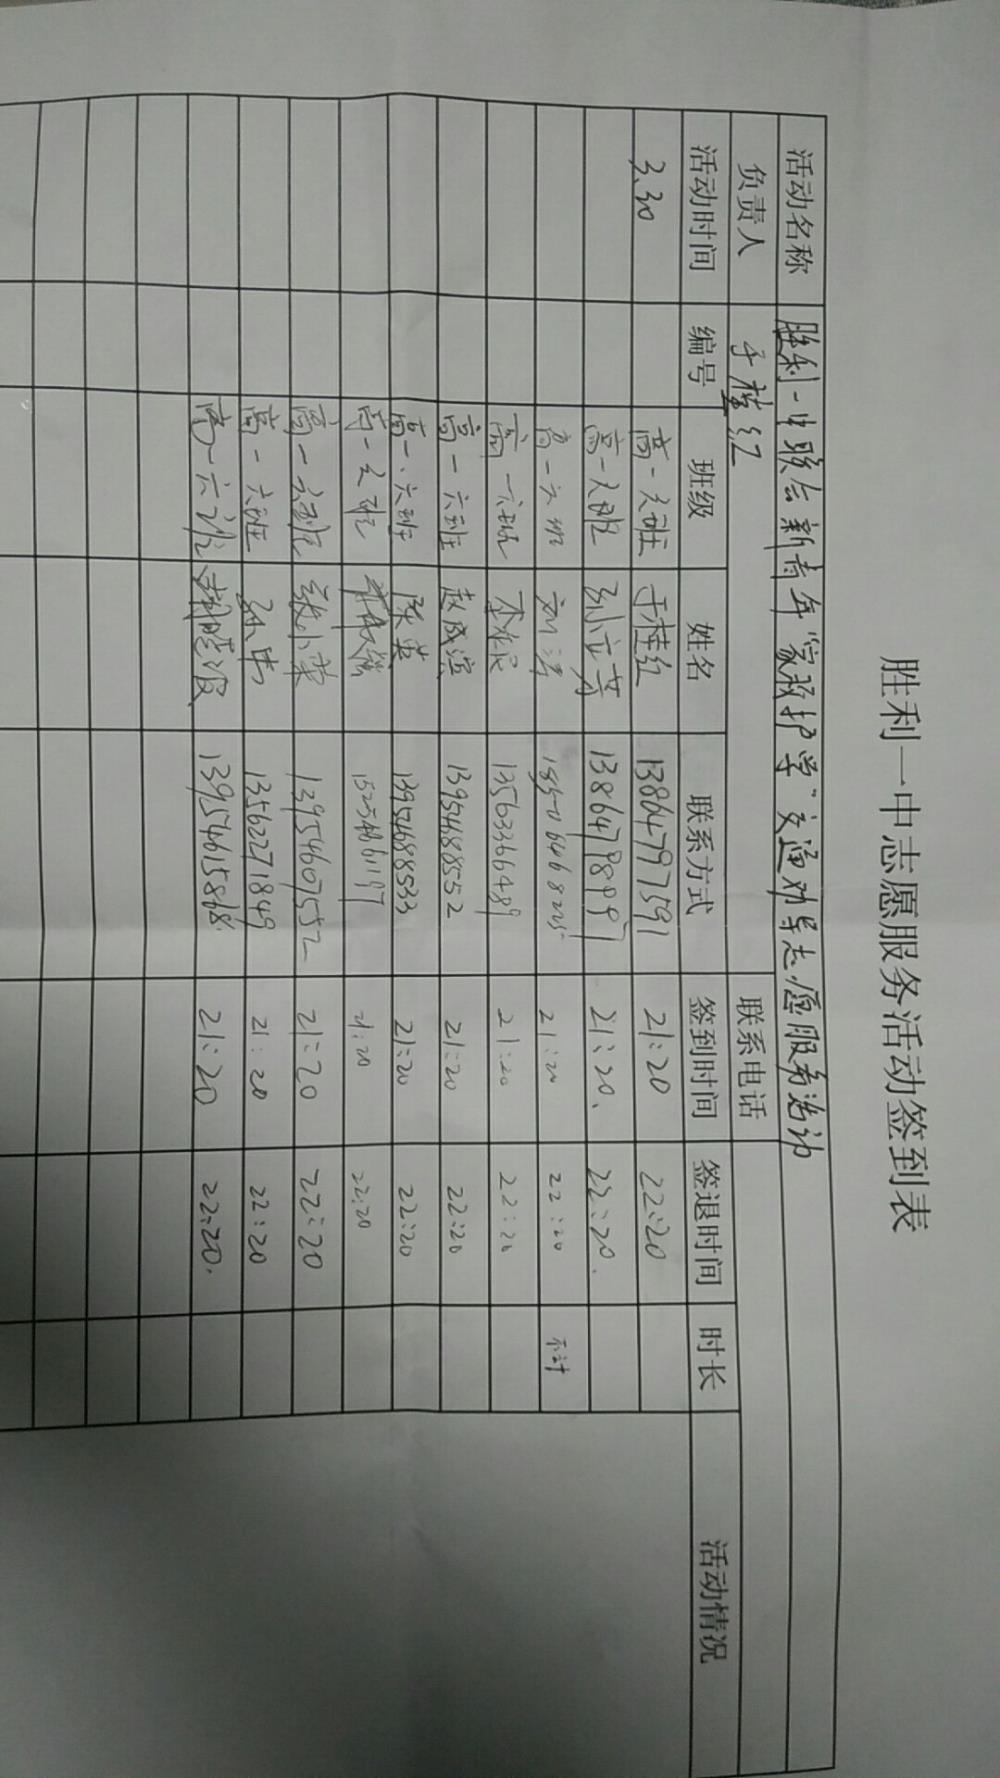 胜利一中志愿服务活动签到表
活动名称 胜利一中联合新青年"家政护学"交通劝导志愿服务活动
负责人 于桂红 联系电话
活动时间 编号 班级 姓名 联系方式 签到时间 签退时间 时长 活动情况
3.30 高一六班 于桂红 13864797591 21:20 22:20
高一六班 孙立芳 21:20. 22:20.
高一六班 刘涛 21:20 22:20 不计
高一六班 13563366489 21:20 22:20
高一六班 赵成滨 13954688552 21:20 22:20
高一.六班 陈英 13954688533 21:20 22:20
高一六班 21:20 22:20
高一六班 13954607552 21:20 22:20
高一六班 13562271849 21:20 22:20
高一六班 13954615868 21:20 22:20.